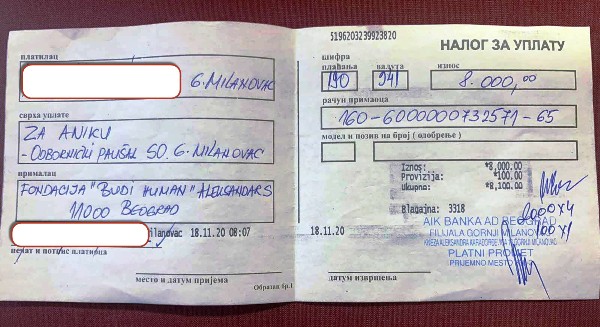 платилац
G. MILANOVAC
сврха уплате
ZA ANIKU
- ODBORNIČKI PAUŠAL SO. G. MILANOVAC
прималац
FONDACIJA "BUDI HUMAN" ALEKSANDAR Š
11000 BEOGRAD
Milanovac 18.11.20 08:07
печат и потпис платиоца
место и датум пријема
Образац бр.1
5196203239923820
НАЛОГ ЗА УПЛАТУ
шифра
плаћања валута износ
190 941 8.000,00
рачун примаоца
160-6000000732571-65
модел и позив на број ( одобрење )
Iznos: *8,000.00
Provizija: *100.00
Ukupno: *8,100.00
Blagajna: 3318
2000x4
100x1
18.11.20
AIK BANKA AD BEOGRAD
FILIJALA GORNJI MILANOVAC
PLATNI PROMET
PRIJEMNO MESTO
датум извршења